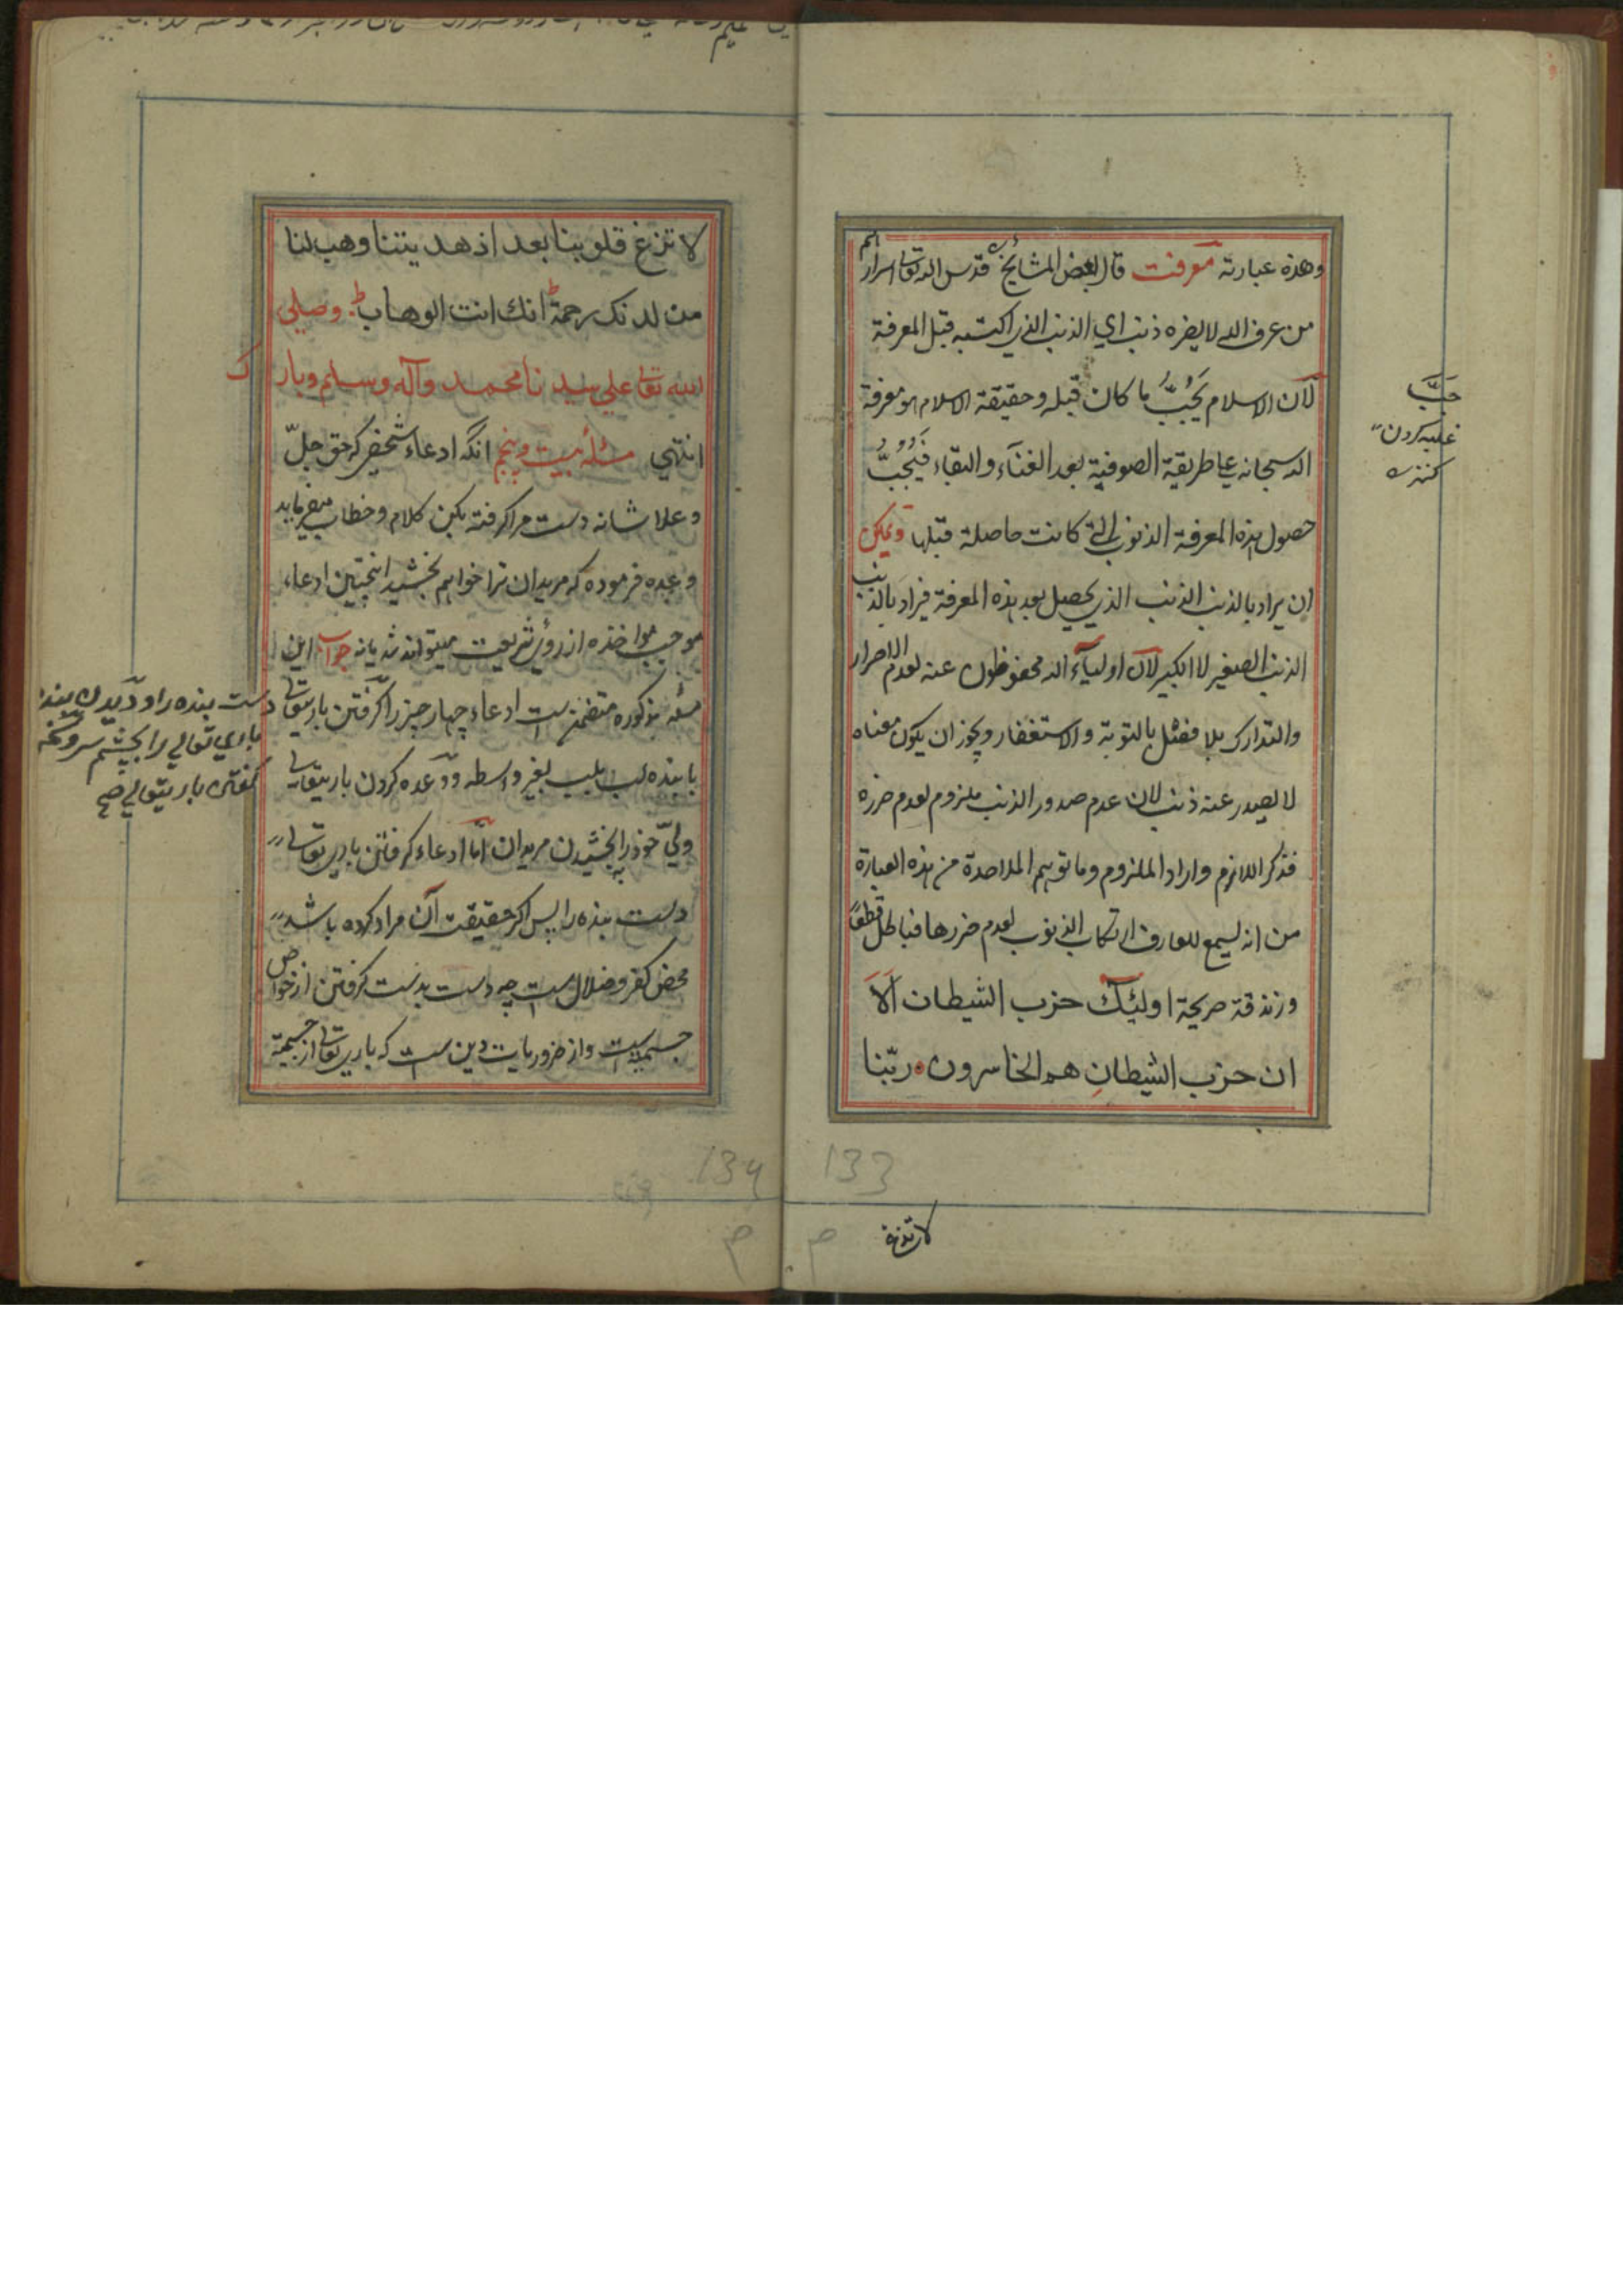 وهذه عبارته معرفت قال بعض المشائخ قدس الله تعالی اسرارهم
من عرف الله لا يضره ذنب اي الذنب الذي اكتسبه قبل المعرفة
لان الاسلام يَجُبُّ ما كان قبله وحقيقة الاسلام هو معرفة
الله سبحانه علی طريقة الصوفية بعد الفنآء والبقاء فيَجُبُّ
حصول هذه المعرفة الذنوب التي كانت حاصلة قبلها ويمكن
ان يراد بالذنب الذنب الذي يحصل بعد هذه المعرفة فيراد بالذنب
الذنب الصغير لا الكبير لان اوليآء الله محفوظون عنه لعدم الاصرار
والتدارك بلا فصل بالتوبة والاستغفار ويجوز ان يكون معناه
لا يصدر عنه ذنب لان عدم صدور الذنب ملزوم لعدم ضرره
فذكر اللازم واراد الملزوم وما توهم الملاحدة من هذه العبارة
من انه يسع للعارف ارتكاب الذنوب لعدم ضررها فباطل قطعًا
وزندقة صريحة اولئك حزب الشيطان اَلَا
ان حزب الشيطانِ هم الخاسرون ربّنا
جَبَّ
غلبه كردن
كنز
لا تزغ
133
لا تزغ قلوبنا بعد اذ هديتنا وهب لنا
من لدنك رحمة انك انت الوهاب وصلی
الله تعالی علی سيدنا محمد وآله وسلم وبارك
انتهي مسئله بيست وپنجم انكه ادعاء شخصي كه حق جلّ
وعلا شانه دست مرا گرفته بمن كلام وخطاب ميفرمايد
ووعده فرموده كه مريدان ترا خواهم بخشيد اينچنين ادعاء
موجب مواخذه از روي شريعت ميتواند شد يا نه جواب اين
مسئله مذكوره متضمن ست ادعاء چهار چيز را گرفتن باريتعالی
با بنده لب بلب بغير واسطه ووعده كردن باريتعالی
ولیّ خود را به بخشيدن مريدان امّا ادعاء گرفتن باري تعالی
دست بنده را پس اگر حقيقت آن مراد كرده باشد
محض كفر وضلال ست چه دست بدست گرفتن از خواص
جسميت ست واز ضروريات دين ست كه باري تعالی از جسمية
دست بنده را وديدن بنده
باري تعالي را بچشم سر وسخن
گفتن باريتعالي صح
134